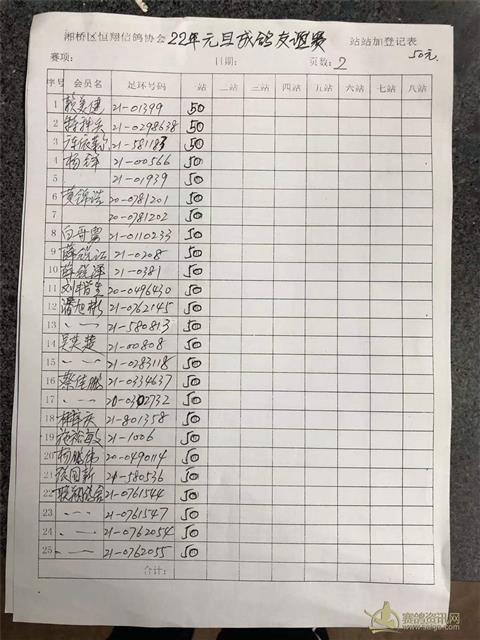 湘桥区恒翔信鸽协会 22年元旦成鸽友谊赛 站站加登记表
赛项: 日期: 页数: 2 50元
序号 会员名 足环号码 一站 二站 三站 四站 五站 六站 七站 八站
1 21-01399 50
2 21-0298638 50
3 21-581183 50
4 杨锋 21-00566 50
5 21-01939 50
6 黄锦浩 20-0781201 50
7 20-0781202 50
8 21-0110233 50
9 薛锐江 21-0208 50
10 薛锐泽 21-0381 50
11 20-0496430 50
12 潘旭彬 21-0762145 50
13 〃 一 21-580813 50
14 吴奕楚 21-00808 50
15 〃 一 21-0283118 50
16 蔡佳鹏 21-0334637 50
17 〃 一 20-0302732 50
18 21-801358 50
19 21-1006 50
20 杨鹏伟 20-0490114 50
21 张国新 21-580536 50
22 21-0761544 50
23 〃 一 21-0761547 50
24 〃 一 21-0762054 50
25 〃 一 21-0762055 50
合计:
赛鸽资讯网